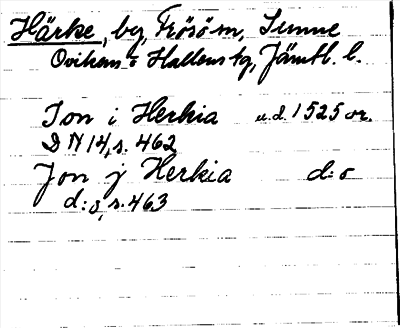 Härke, by, Frösöm, Sunne
Oviken o Hallens tg, Jämtl. l.
Jon i Herkia u.d. 1525 or.
DN 14, s. 462
Jon j Herkia d:o
d:o, s. 463